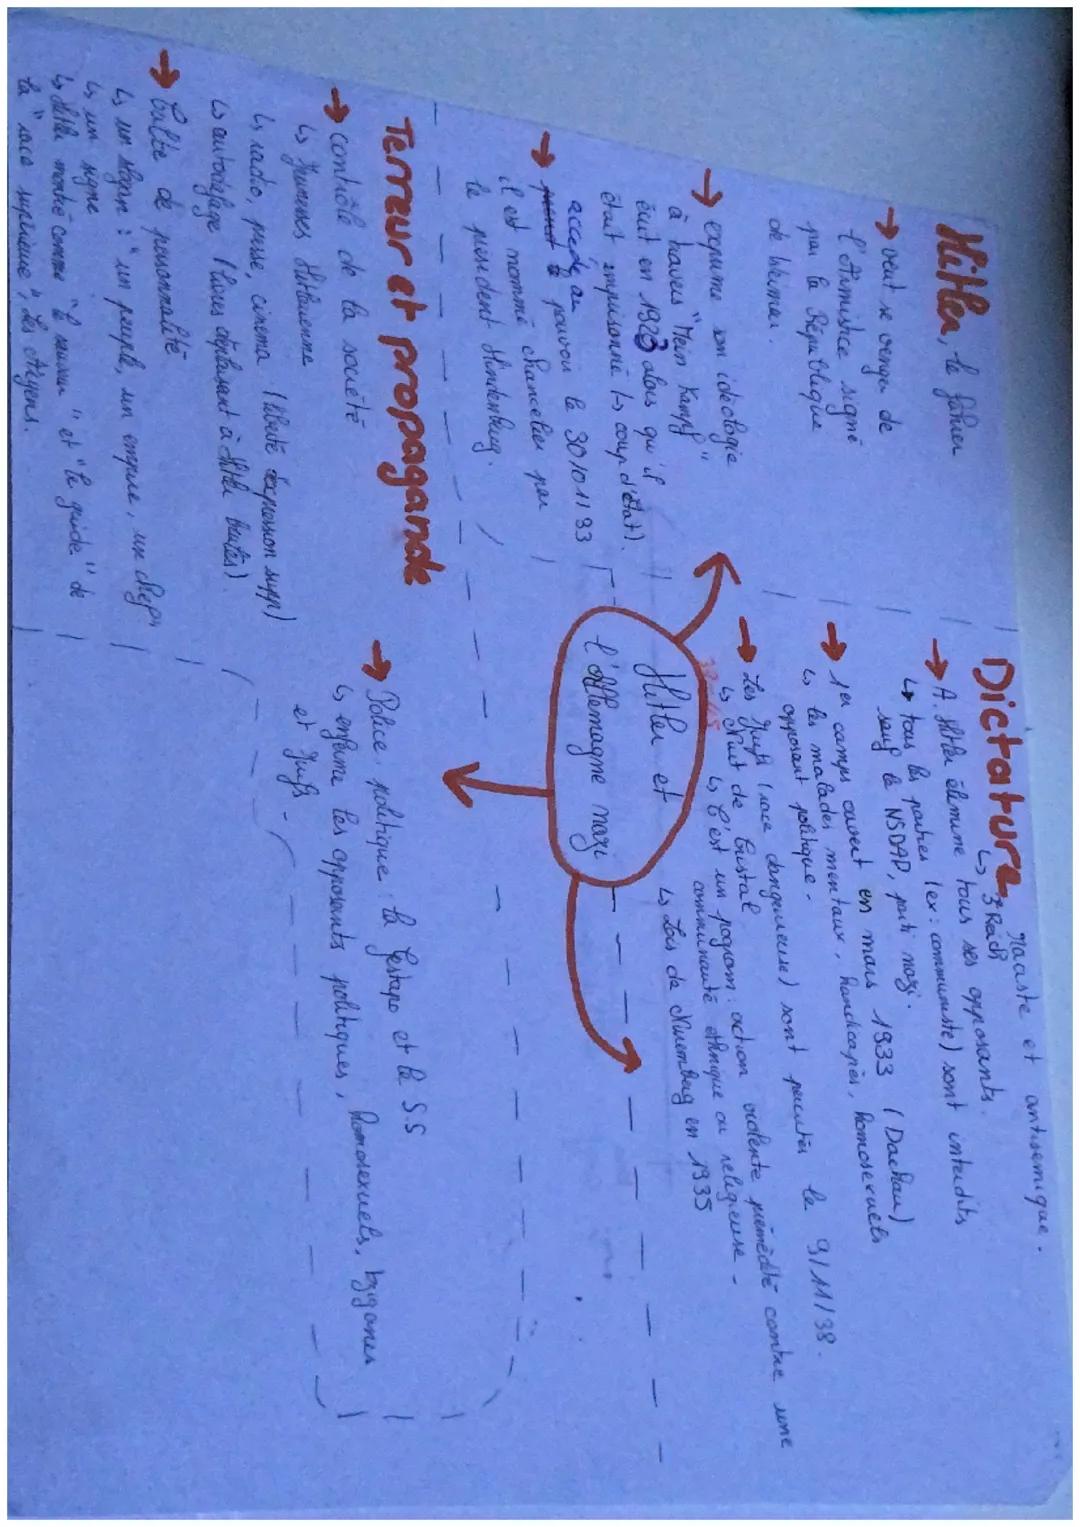 Hitler, le führer
→ veut se venger de
l'Armistice signé
par la République
de Weimar.
→ exprime son idéologie
à travers "Mein Kampf"
écrit en 1923 alors qu'il
était emprisonné (→ coup d'état).
accède au
→ pouvoir le 30/01/33
il est nommé chancelier par
le président Hindenburg.
Dictature raciste et antisemique.
↳ 3 Reich
→ A. Hitler élimine tous ses opposants.
↳ tous les parties (ex: communiste) sont interdits
sauf le NSDAP, parti nazi.
→ 1er camps ouvert en mars 1933 (Dachau)
↳ les malades mentaux, handicapés, homosexuels
opposant politique.
→ Les Juifs (race dangereuse) sont persecutés le 9/11/38.
↳ Nuit de Cristal
↳ C'est un pogrom: action violente préméditée contre une
communauté ethnique ou religieuse.
↳ Lois de Nuremberg en 1935
Hitler et
l'Allemagne nazi
Terreur et propagande
→ contrôle de la société
↳ Jeunesses Hitlerienne
↳ radio, presse, cinema (liberté d'expression supp)
↳ autodafage (livres déplaisant à Hitler brulés).
→ Culte de personnalité
↳ un slogan: "un peuple, un empire, un chef"
↳ un signe
↳ Hitler montré comme "le sauveur" et "le guide" de
la "race supérieure", les Aryens.
→ Police politique: la Gestapo et le S.S
↳ enferme les opposants politiques, homosexuels, tziganes
et Juifs.